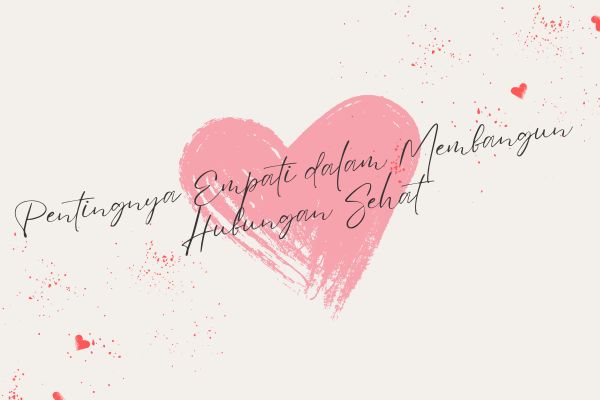 Pentingnya Empati dalam Membangun
Hubungan Sehat